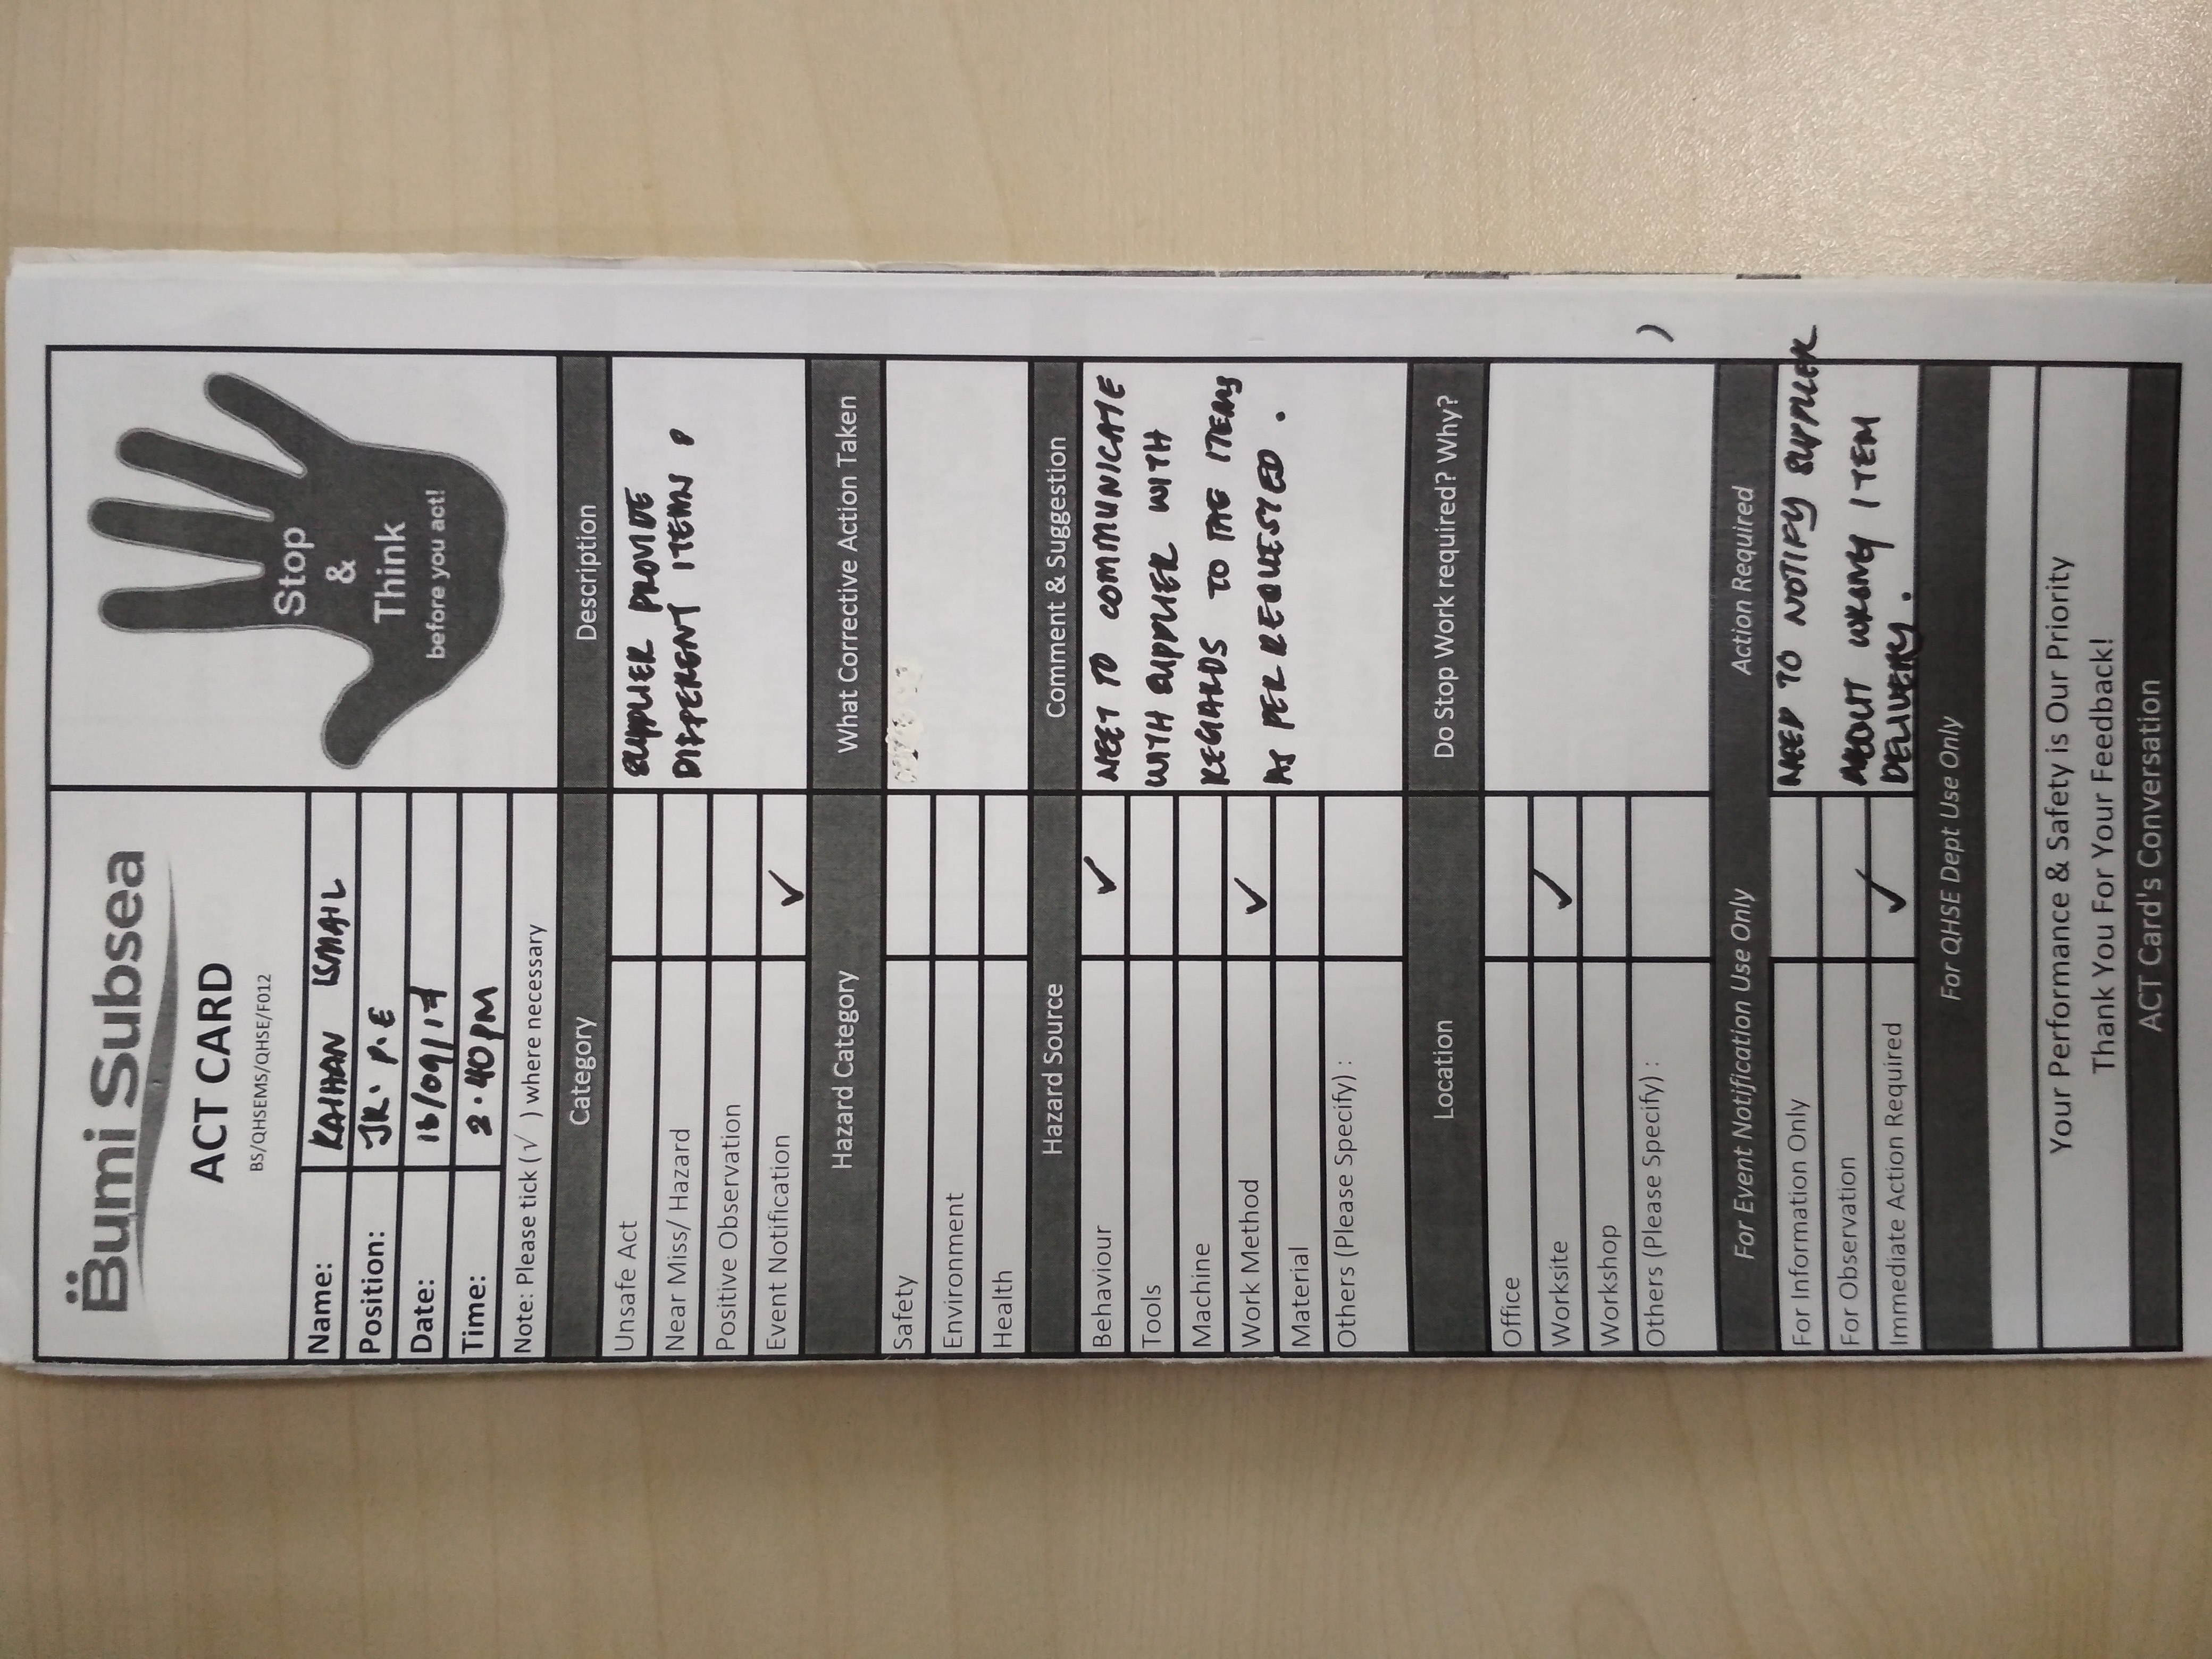 Bumi Subsea
ACT CARD
BS/QHSEMS/QHSE/F012
Stop
&
Think
before you act!
Name: RAIHAN ISMAIL
Position: JR. P.E
Date: 16/09/17
Time: 2.40 PM
Note: Please tick ( √ ) where necessary
Category Description
Unsafe Act SUPPLIER PROVIDE
Near Miss/ Hazard DIFFERENT ITEMS
Positive Observation
Event Notification ✓
Hazard Category What Corrective Action Taken
Safety
Environment
Health
Hazard Source Comment & Suggestion
Behaviour ✓ NEET TO COMMUNICATE
Tools WITH SUPPLIER WITH
Machine REGARDS TO THE ITEMS
Work Method ✓ AS PER REQUESTED.
Material
Others (Please Specify) :
Location Do Stop Work required? Why?
Office
Worksite ✓
Workshop
Others (Please Specify) :
For Event Notification Use Only Action Required
For Information Only NEED TO NOTIFY SUPPLIER
For Observation ABOUT WRONG ITEM
Immediate Action Required ✓ DELIVERY.
For QHSE Dept Use Only
Your Performance & Safety is Our Priority
Thank You For Your Feedback!
ACT Card's Conversation